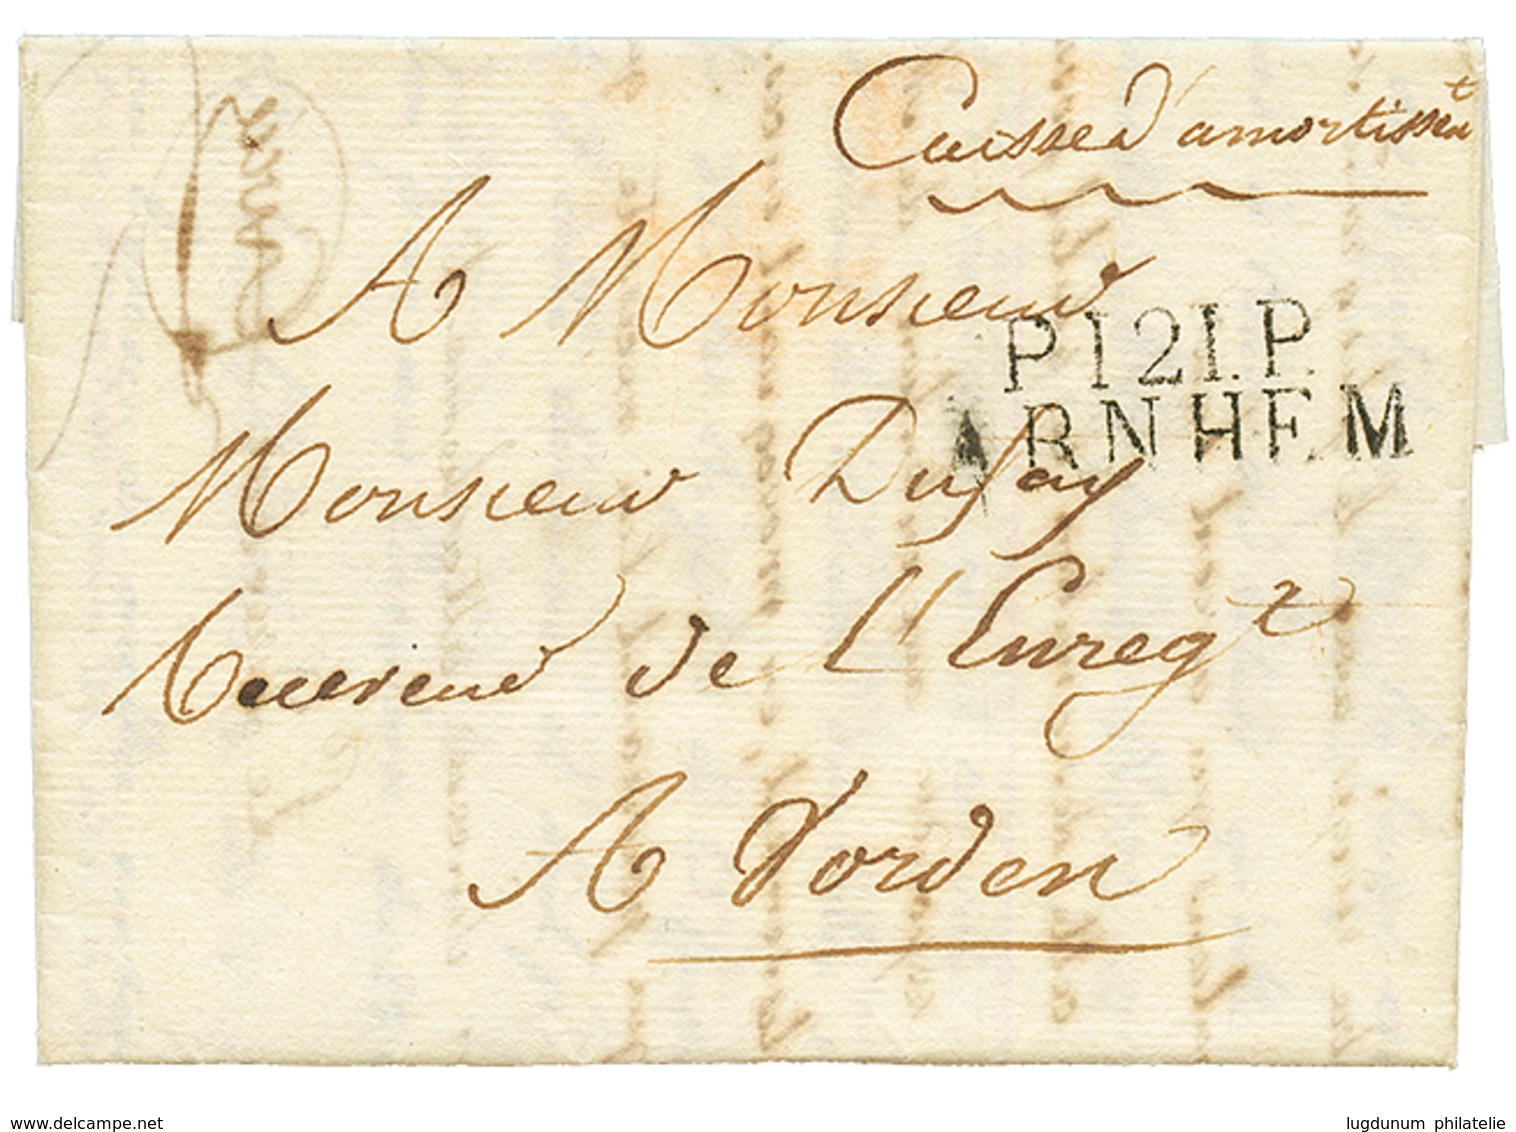 Caisse d'amortissent
A Monsieur
P.121.P.
ARNHEM
Monsieur Dufay
Receveur de L'Enregt
A Vorden
www.delcampe.net
lugdunum philatelie